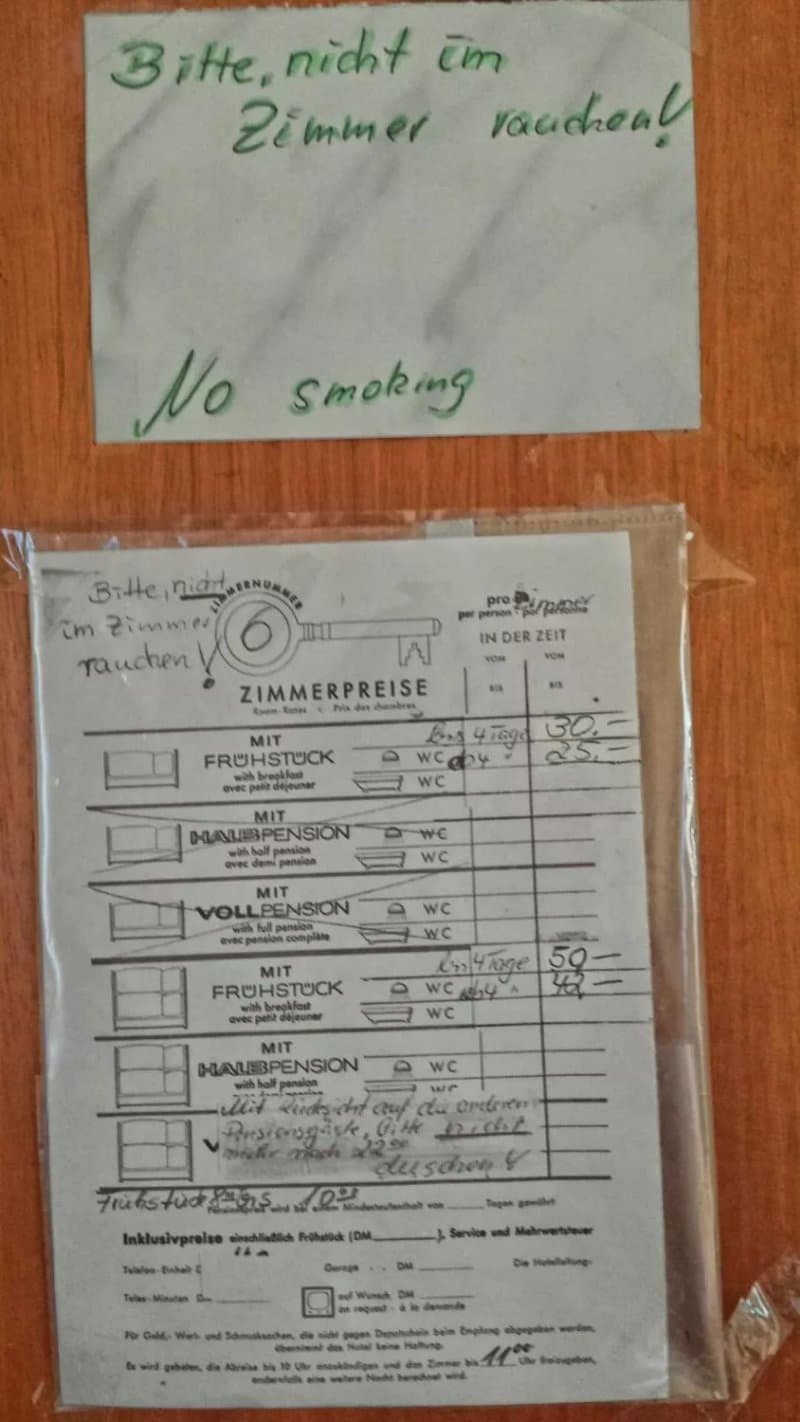 Bitte, nicht im
Zimmer rauchen!
No smoking
Bitte, nicht
im Zimmer
rauchen!
ZIMMERNUMMER
6
pro Zimmer
per person - par personne
IN DER ZEIT
VOM VOM
BIS BIS
ZIMMERPREISE
Room-Rates - Prix des chambres
bis 4 Tage 30.-
MIT
FRÜHSTÜCK WC ab 4 " 25.-
with breakfast WC
avec petit déjeuner
MIT
HALBPENSION WC
with half pension WC
avec demi pension
MIT
VOLLPENSION WC
with full pension WC
avec pension complète
bis 4 Tage 50-
MIT
FRÜHSTÜCK WC ab 4 " 42-
with breakfast WC
avec petit déjeuner
MIT
HALBPENSION WC
with half pension WC
Mit Rücksicht auf die anderen
Pensionsgäste, bitte nicht
mehr nach 22 00
duschen!
Frühstück bis 10 00
wird bei einem Mindestaufenthalt von Tagen gewährt
Inklusivpreise einschließlich Frühstück (DM ), Service und Mehrwertsteuer
Telefon-Einheit Garage . . DM Die Hotelleitung:
Telex-Minuten auf Wunsch DM
on request - à la demande
Für Geld,- Wert- und Schmucksachen, die nicht gegen Depotschein beim Empfang abgegeben werden,
übernimmt das Hotel keine Haftung.
Es wird gebeten, die Abreise bis 10 Uhr anzukündigen und das Zimmer bis 11 00 Uhr freizugeben,
andernfalls eine weitere Nacht berechnet wird.